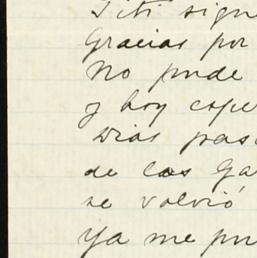 Titi sign
Gracias por
No pude
y hoy espe
dias pasa
de las Ga
se volvió
ya me pu